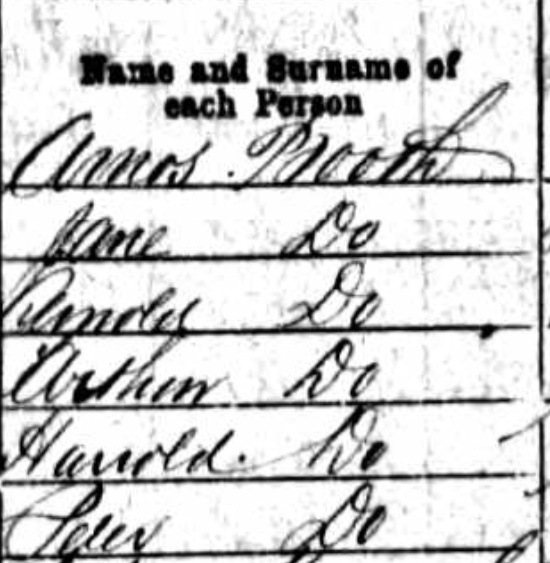 Name and Surname of
each Person
Amos Booth
Jane Do
Arnold Do
Arthur Do
Harrold Do
Peter Do